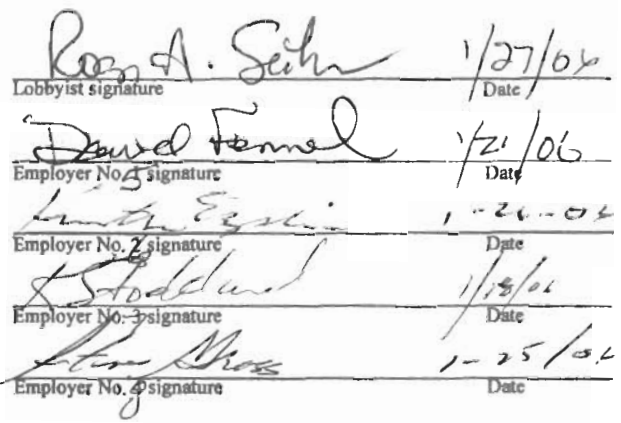 Roger A. 1/27/06
Lobbyist signature Date
David Fennel 1/21/06
Employer No. 5 signature Date
1-26-06
Employer No. signature Date
K Stoddard 1/18/06
Employer No. signature Date
Steve Gross 1-25/06
Employer No. signature Date